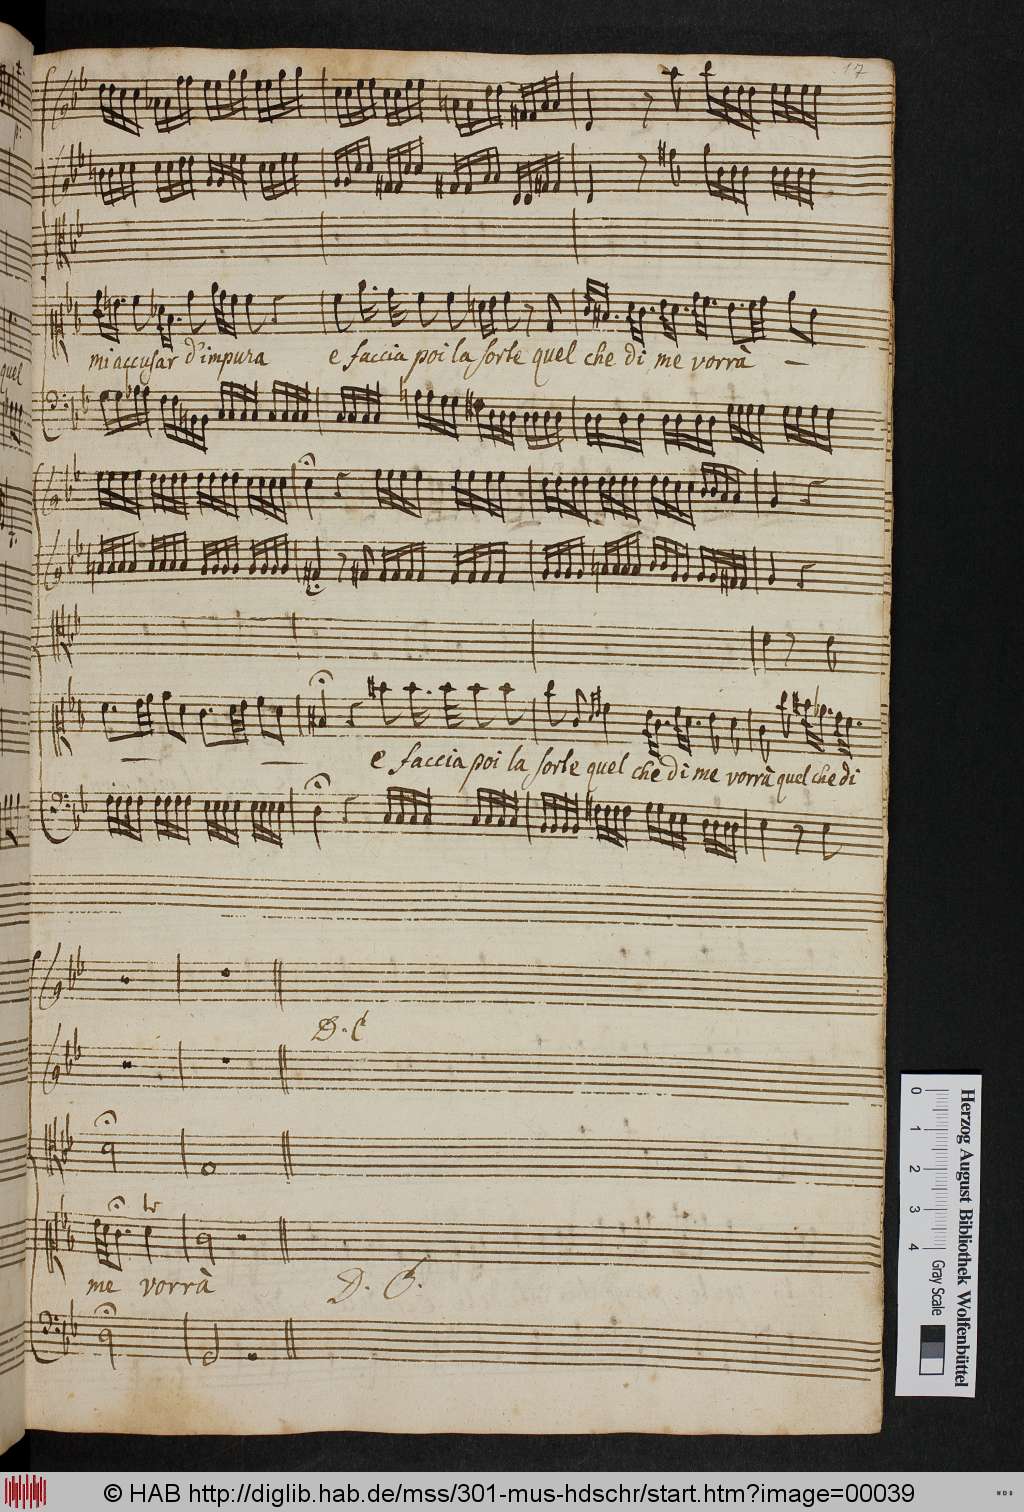 17
mi accusar d'impura e faccia poi la sorte quel che di me vorrà
e faccia poi la sorte quel che di me vorrà quel che di
D. C
me vorrà D. C.
quel
Herzog August Bibliothek Wolfenbüttel
0 1 2 3 4 Gray Scale
© HAB http://diglib.hab.de/mss/301-mus-hdschr/start.htm?image=00039